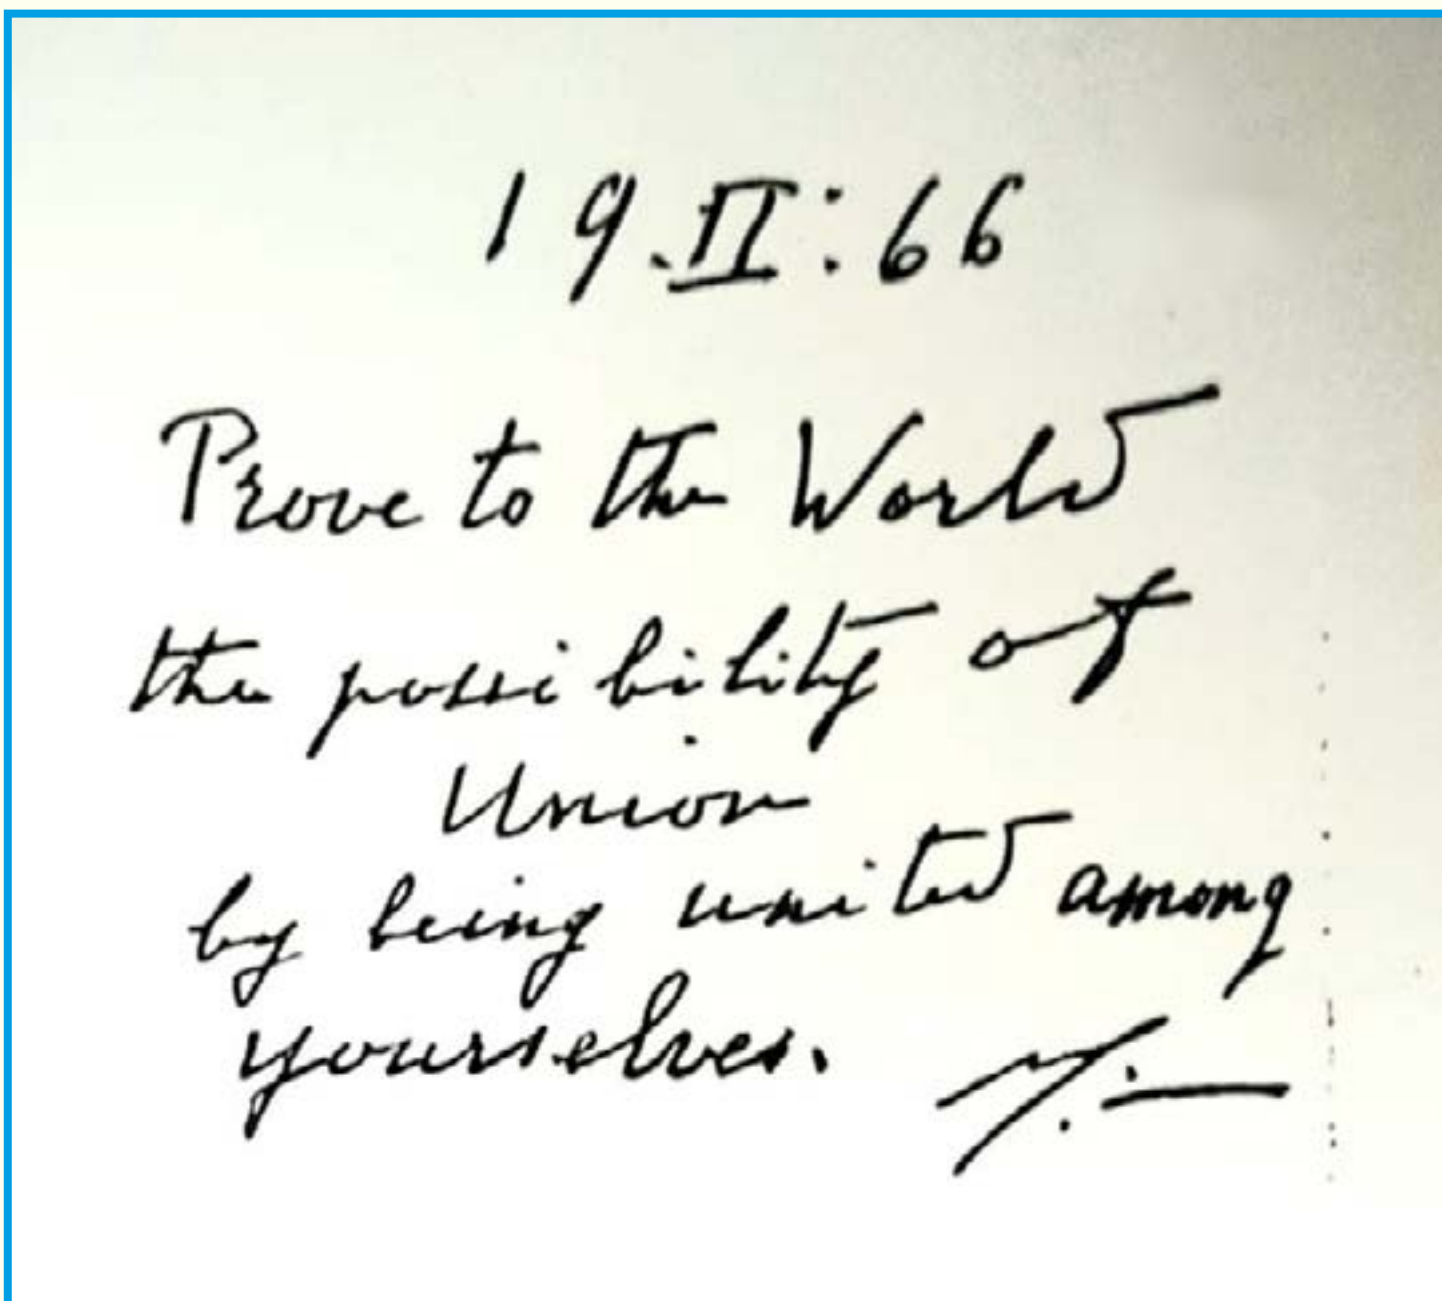 19.II:66
Prove to the World
the possibility of
Union
by being united among
yourselves.